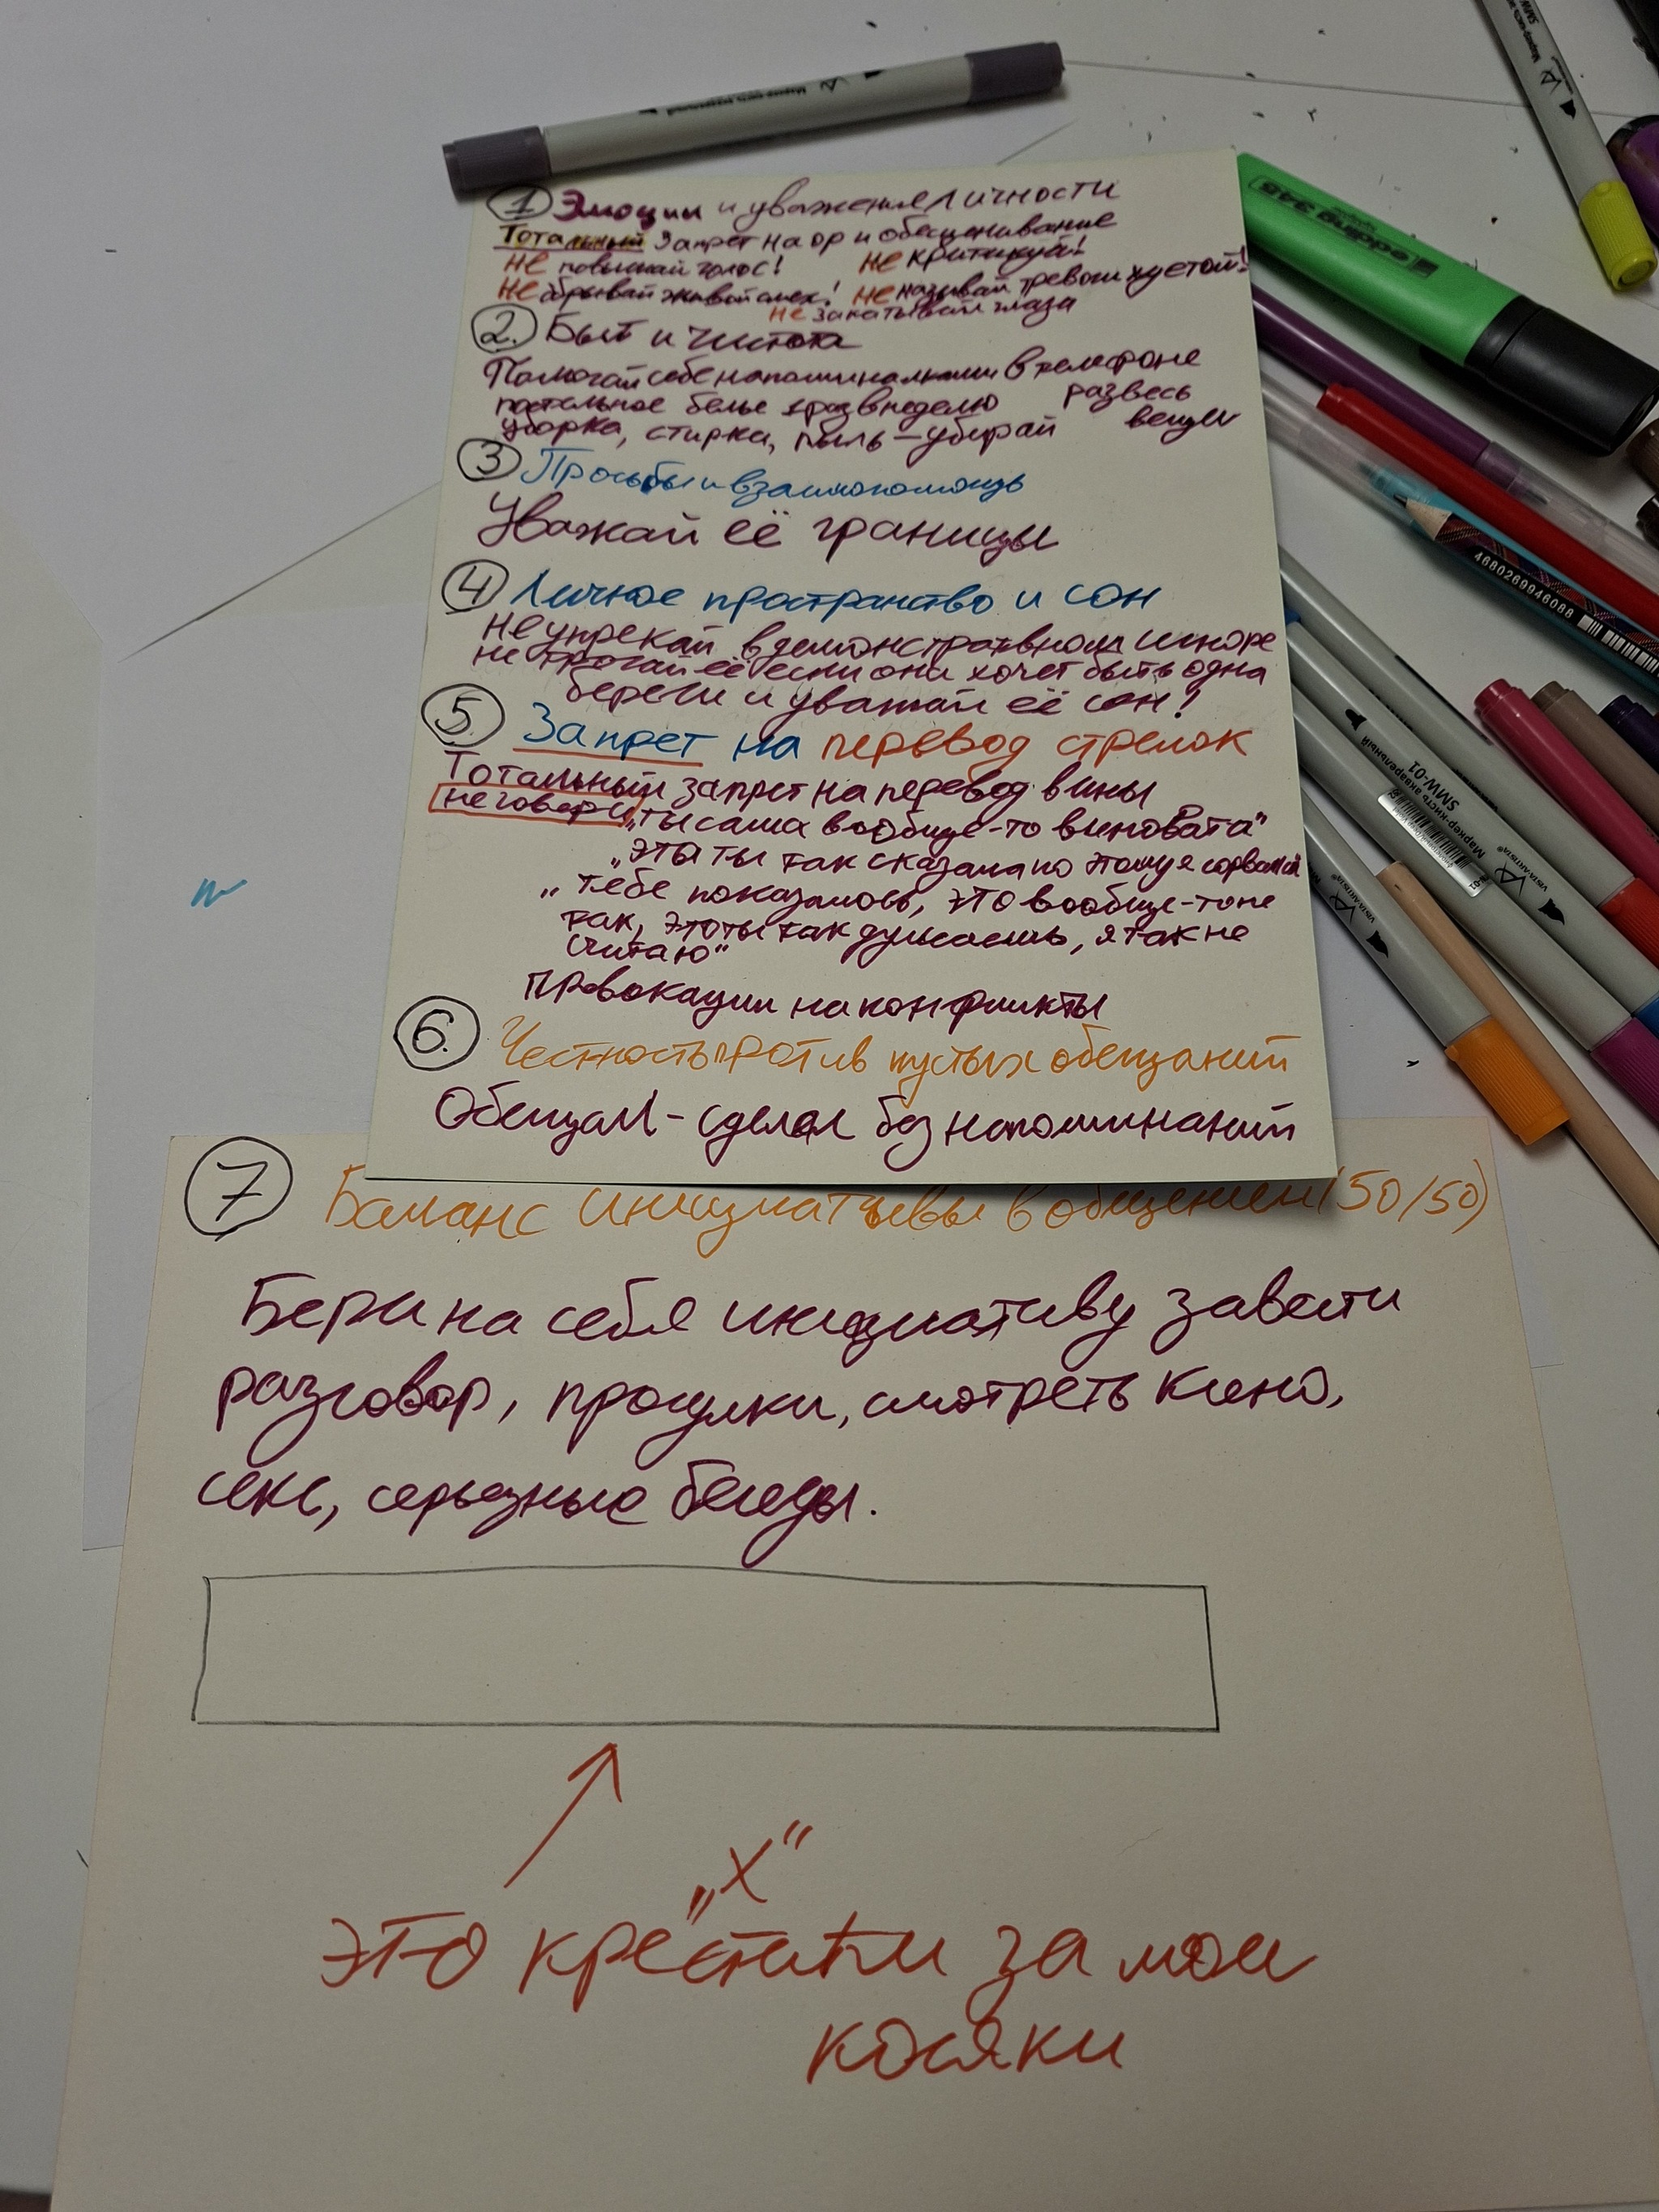 1 Эмоции и уважение личности
Тотальный запрет на ор и обесценивание
Не повышай голос! Не критикуй!
Не обрывай живой смех! Не называй тревоги хуетой!
Не закатывай глаза
2. Быт и чистота
Помогай себе напоминалками в телефоне
постельное белье 1 раз в неделю развесь
уборка, стирка, пыль – убирай вещи
3 Просьбы и взаимопомощь
Уважай её границы
4 Личное пространство и сон
Не упрекай в демонстративном игноре
не трогай её если она хочет быть одна
береги и уважай её сон!
5. Запрет на перевод стрелок
Тотальный запрет на перевод вины
не говори „ты сама вообще-то виновата"
„это ты так сказала поэтому я сорвался
„тебе показалось, это вообще-то не
так, это ты так думаешь, я так не
считаю"
Провокации на конфликты
6. Честность против пустых обещаний
Обещал – сделал без напоминаний
7 Баланс инициативы в общении (50/50)
Бери на себя инициативу завести
разговор, прогулки, смотреть кино,
секс, серьезные беседы.
„X"
это крестики за мои
косяки
edding 345
4680269946088
Маркер-кисть акварельный
SMW-01
VISTA-ARTISTA